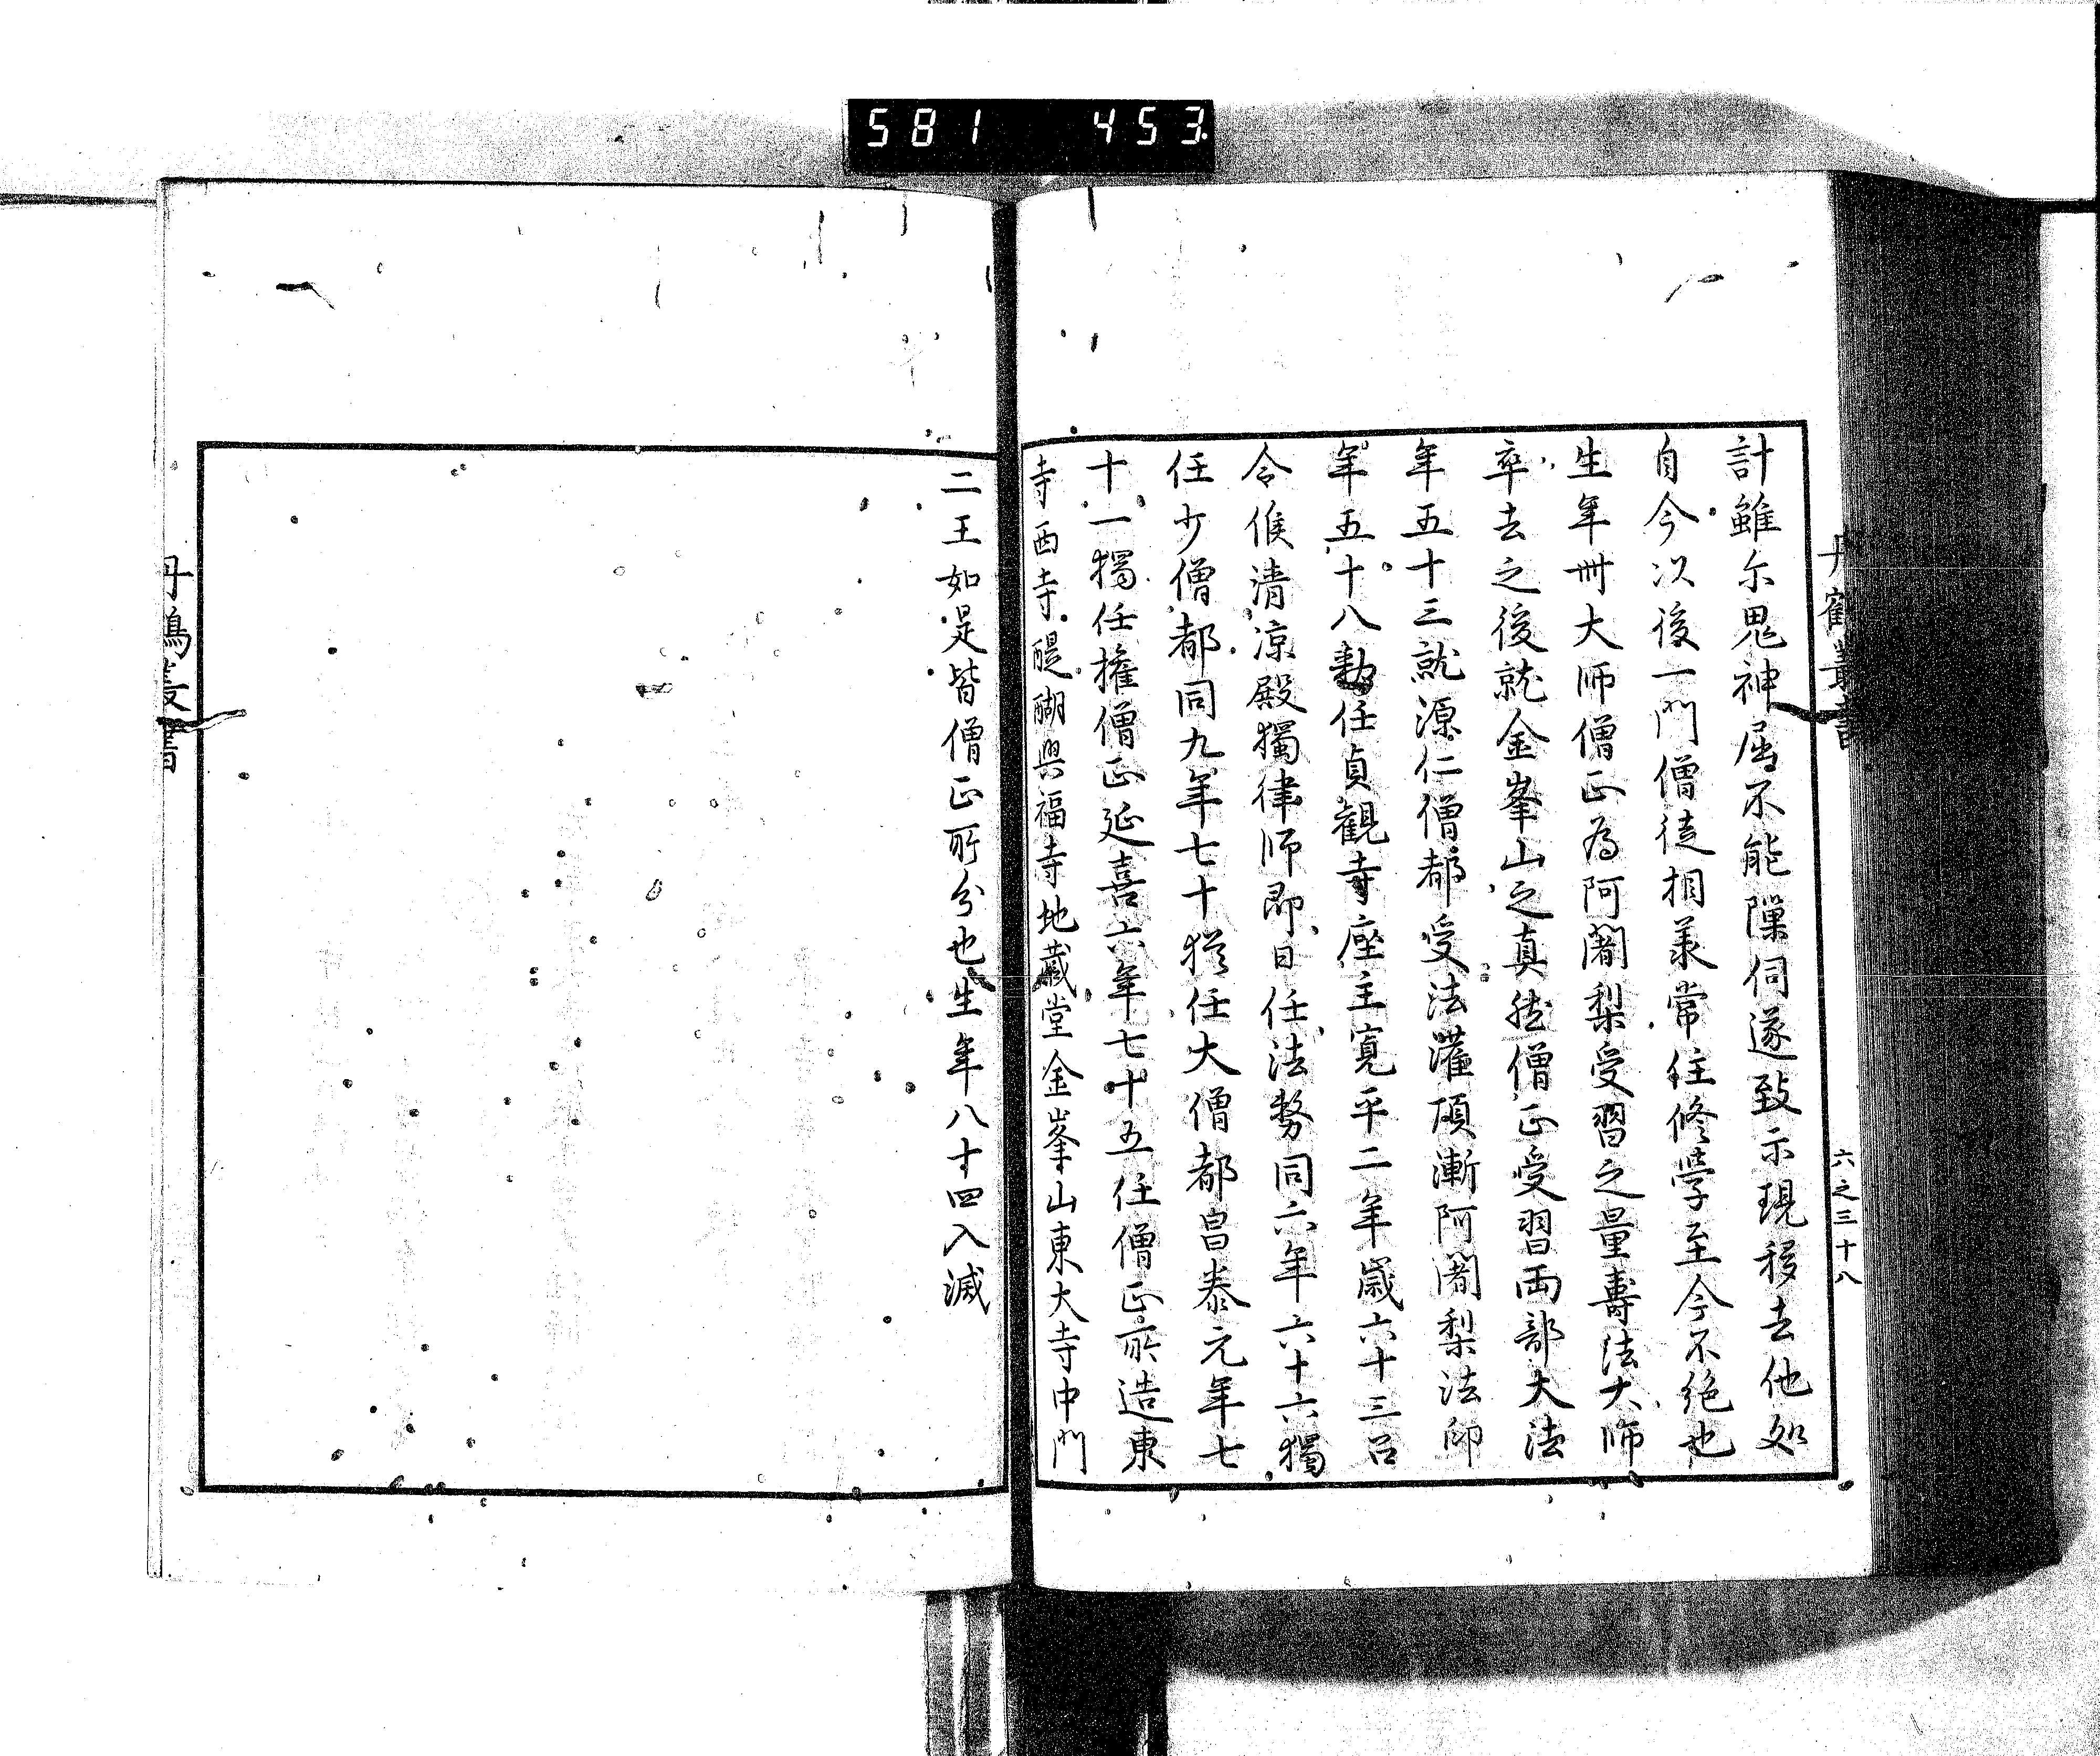 581 453
丹鶴叢書
六之三十八
計雖尓鬼神屈不能隟伺遂致示現移去他処
自今以後一門僧徒相羕常住修学至今不絶也
生年卌大师僧正為阿闍梨受習之量壽法大师
卒去之後就金峯山之真然僧正受習両部大法
年五十三就源仁僧都受法灌頂漸阿闍梨法印
年五十八勅任貞觀寺座主寛平二年歳六十三召
令候清凉殿獨律师即日任法務同六年六十六獨
任少僧都同九年七十猶任大僧都昌泰元年七
十一獨任権僧正延喜六年七十五任僧正所造東
寺西寺醍醐興福寺地蔵堂金峯山東大寺中門
二王如是皆僧正所分也生年八十四入滅
丹鶴叢書